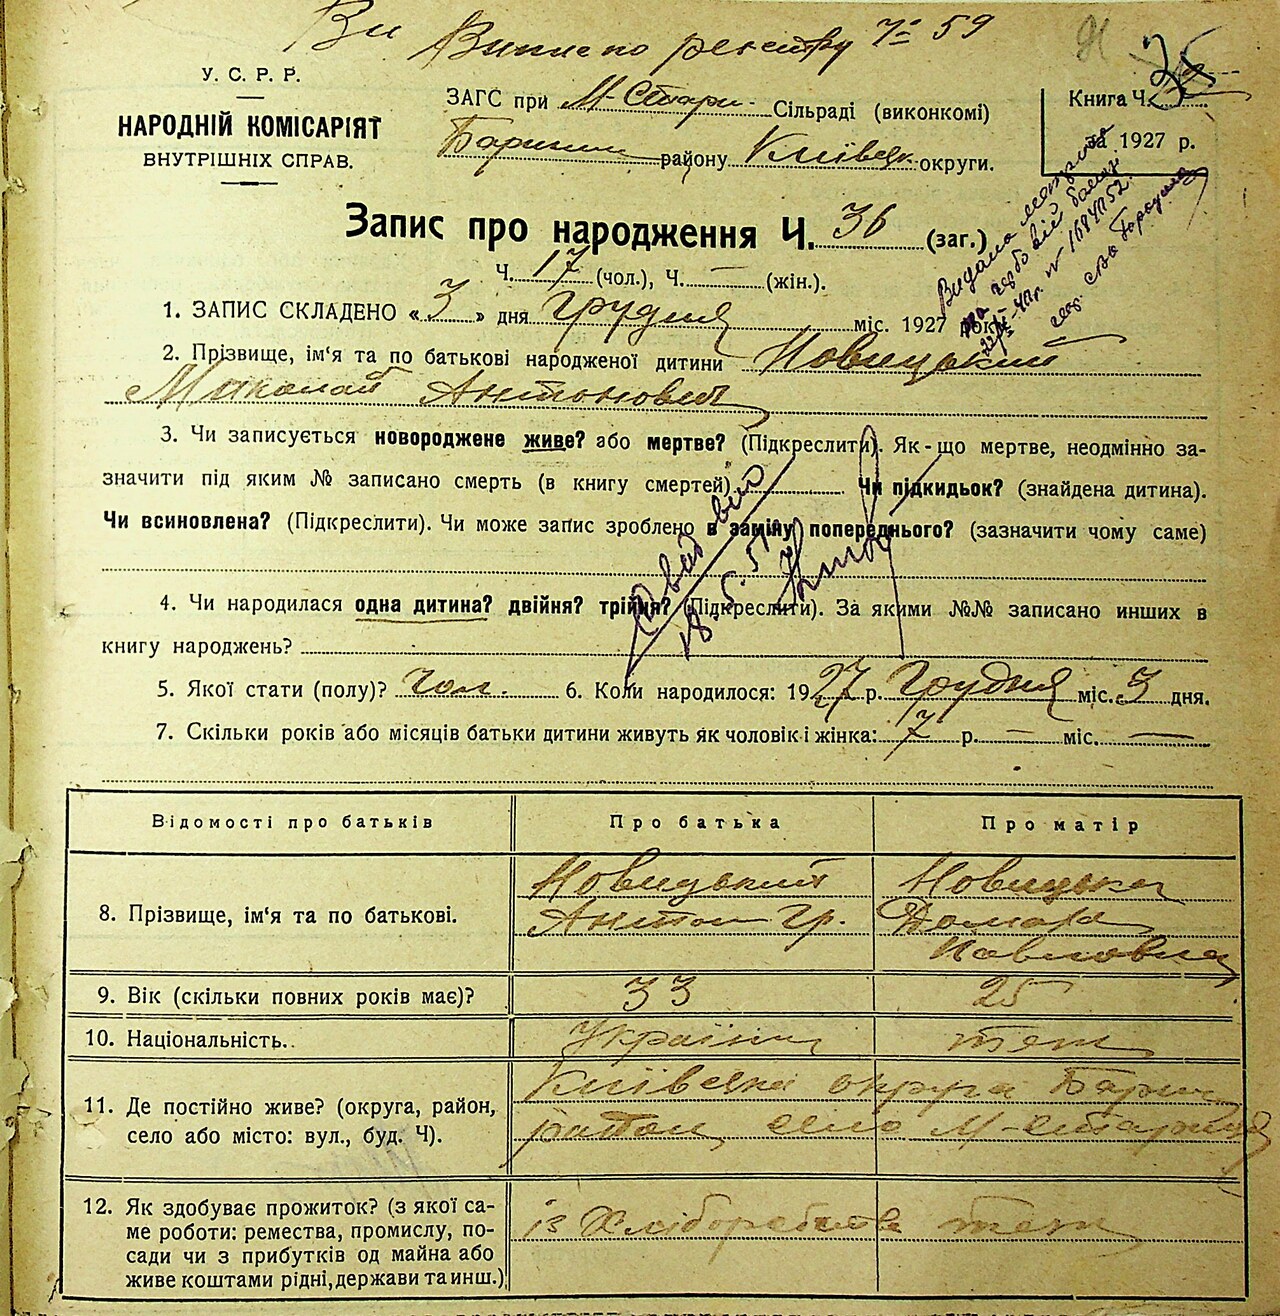 Ви Виписано реєстру № 59
У. С. Р. Р.
НАРОДНІЙ КОМІСАРІЯТ
ВНУТРІШНІХ СПРАВ.
ЗАГС при М-Стари- Сільраді (виконкомі)
району Київськ округи.
Книга Ч. 35
за 1927 р.
Запис про народження Ч. 36 (заг.)
Ч. 17 (чол.), Ч. — (жін.).
Видано
№ 1684752.
1. ЗАПИС СКЛАДЕНО «3» дня грудня міс. 1927 року
2. Прізвище, ім‘я та по батькові народженої дитини Новицький
Миколай Антонович
3. Чи записується новороджене живе? або мертве? (Підкреслити). Як-що мертве, неодмінно за-
значити під яким № записано смерть (в книгу смертей) Чи підкидьок? (знайдена дитина).
Чи всиновлена? (Підкреслити). Чи може запис зроблено в заміну попереднього? (зазначити чому саме)
18.5.51
4. Чи народилася одна дитина? двійня? трійня? (Підкреслити). За якими №№ записано инших в
книгу народжень?
5. Якої стати (полу)? чол. 6. Коли народилося: 1927 р. Грудня міс. 3 дня.
7. Скільки років або місяців батьки дитини живуть як чоловік і жінка: 7 р. — міс. —
Відомості про батьків Про батька Про матір
8. Прізвище, ім‘я та по батькові. Новицький Новицька
Антон Гр. Домаха
Павловна
9. Вік (скільки повних років має)? 33 25
10. Національність. Українці теж
11. Де постійно живе? (округа, район,
село або місто: вул., буд. Ч).
Київська округа Бариш
район село М-Стариця
12. Як здобуває прожиток? (з якої са-
ме роботи: ремества, промислу, по-
сади чи з прибутків од майна або
живе коштами рідні, держави та инш.)
із Хліборобства теж